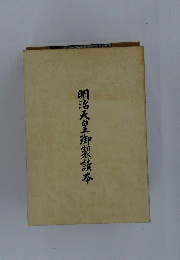 明治天皇御製読本